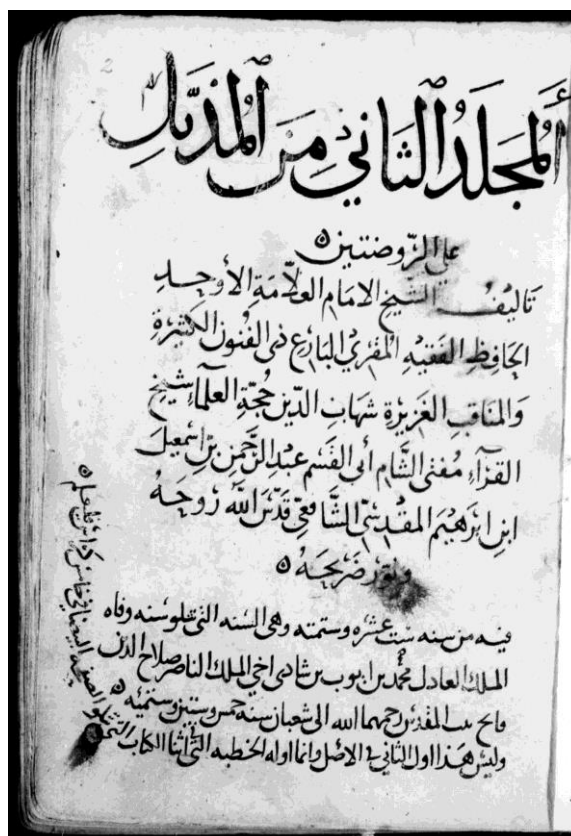 المجلد الثاني من المذيل
على الروضتين
تأليف الشيخ الامام العلامة الأوحد
الحافظ الفقيه المقرئ البارع ذي الفنون الكثيرة
والمناقب الغزيرة شهاب الدين حجة العلماء شيخ
القراء مفتى الشام أبي القسم عبد الرحمن بن اسمعيل
ابن ابرهيم المقدسي الشافعي قدس الله روحه
ونور ضريحه
فيه من سنه ست عشره وستمئه وهى السنه التى تتلو سنه وفاه
الملك العادل محمد بن ايوب بن شادى اخي الملك الناصر صلاح الدين
فاتح بيت المقدس رحمهما الله الى شعبان سنه خمس وستين وستميه
وليس هذا اول الثاني في الاصل وانما اوله الخطبه التي اثنا الكتاب التي
تتلو الصفحه